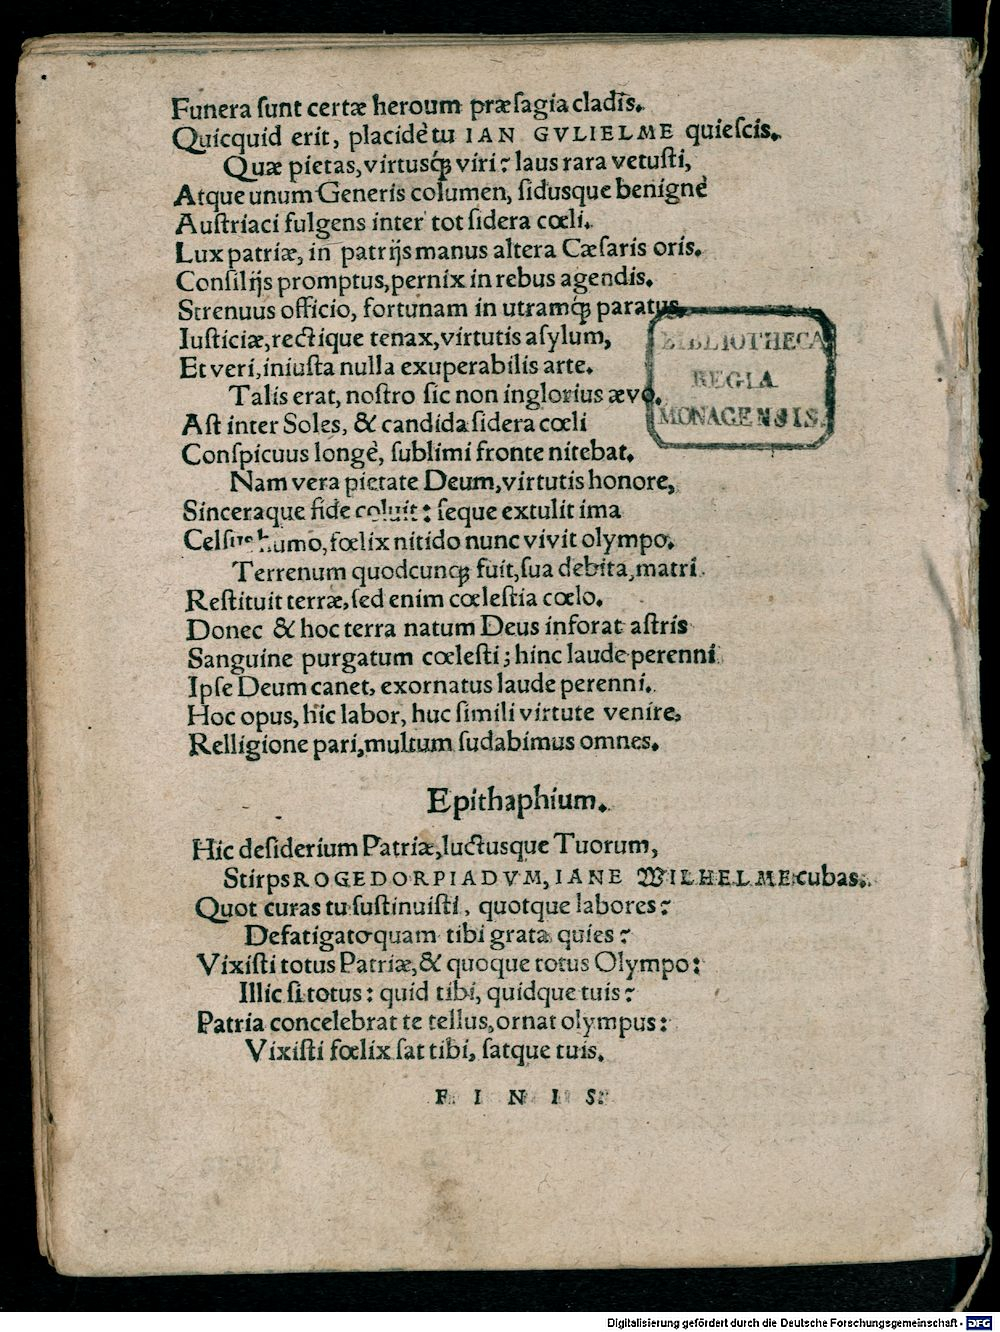 Funera ſunt certæ heroum præſagia cladis.
Quicquid erit, placidè tu IAN GVLIELME quieſcis.
Quæ pietas, virtusq́; viri? laus rara vetuſti,
Atque unum Generis columen, ſidusque benignè
Auſtriaci fulgens inter tot ſidera cœli.
Lux patriæ, in patrijs manus altera Cæſaris oris.
Conſilijs promptus, pernix in rebus agendis.
Strenuus officio, fortunam in utramq́; paratus.
Iuſticiæ, rectique tenax, virtutis aſylum,
Et veri, iniuſta nulla exuperabilis arte.
Talis erat, noſtro ſic non inglorius ævo.
Aſt inter Soles, & candida ſidera cœli
Conſpicuus longè, ſublimi fronte nitebat.
Nam vera pietate Deum, virtutis honore,
Sinceraque fide coluit: ſeque extulit ima
Celſus humo, fœlix nitido nunc vivit olympo.
Terrenum quodcunq; fuit, ſua debita, matri
Reſtituit terræ, ſed enim cœleſtia cœlo.
Donec & hoc terra natum Deus inforat aſtris
Sanguine purgatum cœleſti; hinc laude perenni
Ipſe Deum canet, exornatus laude perenni.
Hoc opus, hic labor, huc ſimili virtute venire,
Relligione pari, multum ſudabimus omnes.
Epithaphium.
Hic deſiderium Patriæ, luctusque Tuorum,
Stirps ROGEDORPIADVM, IANE WILHELME cubas.
Quot curas tu ſuſtinuiſti, quotque labores?
Defatigato quam tibi grata quies?
Vixiſti totus Patriæ, & quoque totus Olympo:
Illic ſi totus: quid tibi, quidque tuis?
Patria concelebrat te tellus, ornat olympus:
Vixiſti fœlix ſat tibi, ſatque tuis.
FINIS.
BIBLIOTHECA
REGIA
MONACENSIS.
Digitalisierung gefördert durch die Deutsche Forschungsgemeinschaft - DFG